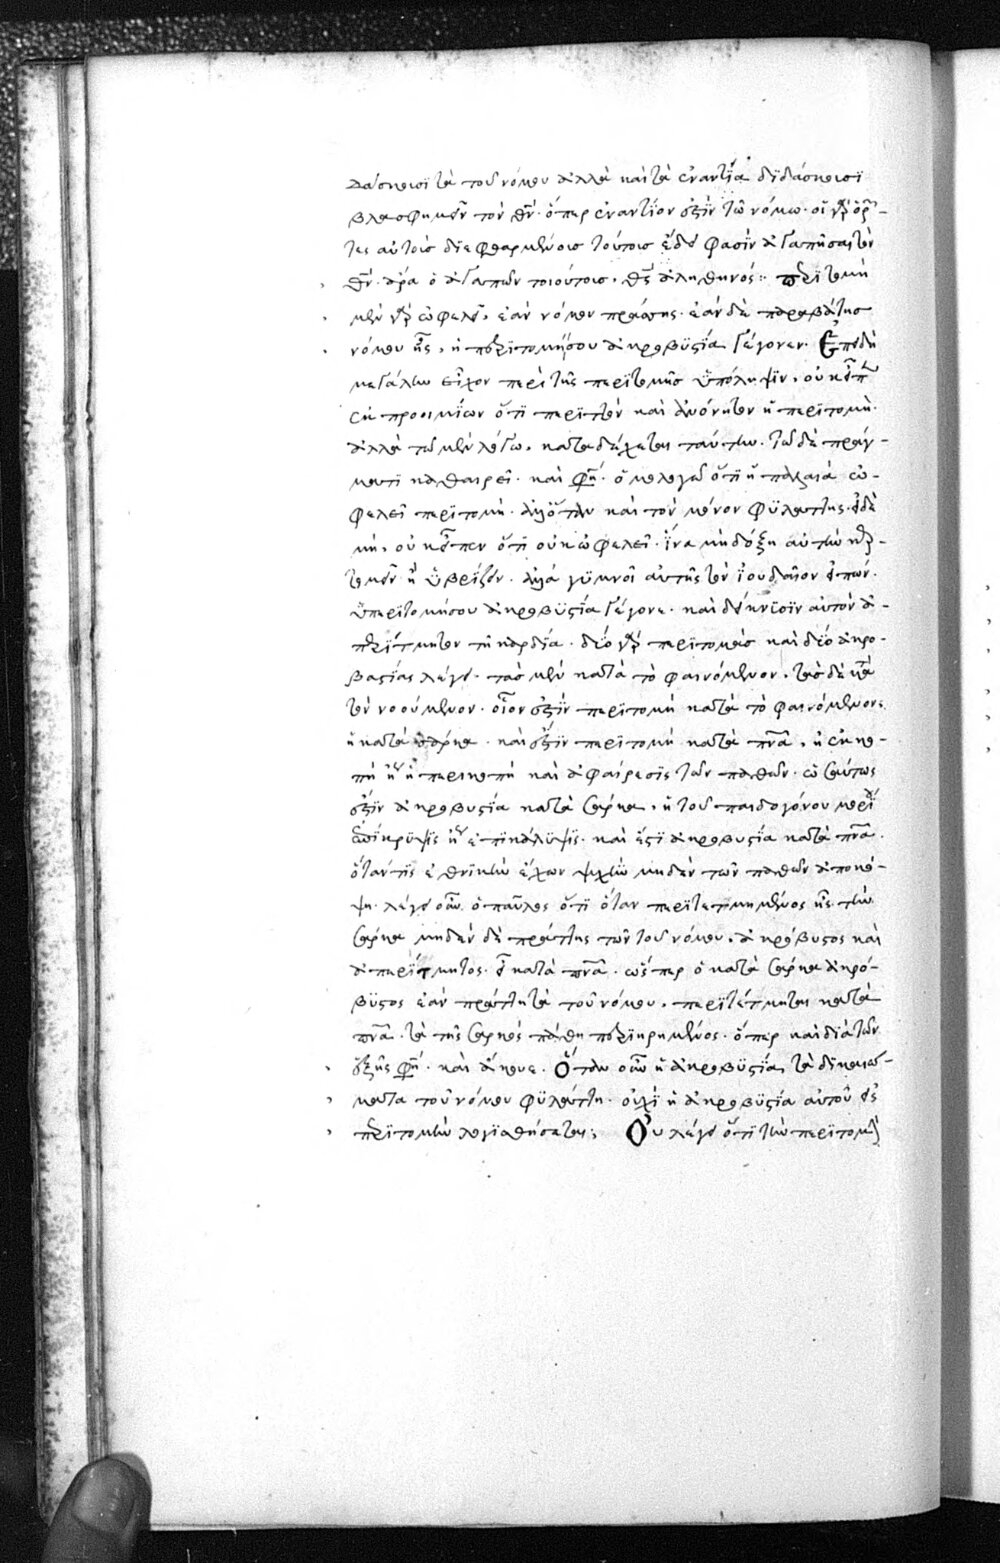 δάσκουσι τὰ τοῦ νόμου ἀλλὰ καὶ τὰ ἐναντία διδάσκουσι
βλασφημεῖν τὸν θν̅· ὅπερ ἐναντίον ἐστὶν τῶ νόμω· οἱ γὰρ ὁρῶν-
τες αὐτοὺς διεφθαρμένους τούτους ἔδει φασὶν ἀγαπῆσαι τὸν
θν̅· ἆρα ὁ ἀγαπῶν τοιούτους, θς̅ ἀληθινός: περιτομὴ
μὲν γὰρ ὠφελεῖ, ἐὰν νόμον πράσσης· ἐὰν δὲ παραβάτης
νόμου ἦς, ἡ περιτομή σου ἀκροβυστία γέγονεν· Ἐπειδὴ
μεγάλην εἶχον περὶ τῆς περιτομῆς ὑπόληψιν, οὐκ εἶπεν
ἐκ προοιμίων ὅτι περιττὸν καὶ ἀνόνητον ἡ περιτομή·
ἀλλὰ τῶ μὲν λόγω, καταδέχεται ταύτην· τῶ δὲ πράγ-
ματι καθαιρεῖ· καὶ φη· ὁμολογῶ ὅτι ἡ παλαιὰ ὠ-
φελεῖ περιτομή· ἀλλ' ὅταν καὶ τὸν νόμον φυλάττης· εἰ δὲ
μή, οὐκ εἶπεν ὅτι οὐκ ὠφελεῖ· ἵνα μὴ δόξη αὐτὴν
ἢ ὑβρίζειν· ἀλλὰ γυμνοῖ αὐτῆς τὸν ἰουδαῖον εἰπών·
ἡ περιτομή σου ἀκροβυστία γέγονε· καὶ δείκνυσιν αὐτὸν ἀ-
περίτμητον τῆ καρδία· δύο γὰρ περιτομὰς καὶ δύο ἀκρο-
βυστίας λέγει· τὰς μὲν κατὰ τὸ φαινόμενον, τὰς δὲ κατὰ
τὸν νοούμενον· οἷον ἐστὶν περιτομὴ κατὰ τὸ φαινόμενον,
ἡ κατὰ σάρκα· καὶ ἐστὶν περιτομὴ κατὰ πνα̅, ἡ ἐκκο-
πὴ ἢ ἡ περικοπὴ καὶ ἀφαίρεσις τῶν παθῶν· ὡσαύτως
ἐστὶν ἀκροβυστία κατὰ σάρκα, ἡ τοῦ παιδογόνου μορίου
ἐπίκρυψις ἢ ἐπικάλυψις· καὶ ἔστι ἀκροβυστία κατὰ πνα̅·
ὅταν τις ἐθνικὴν ἔχων ψυχὴν μηδὲν τῶν παθῶν ἀποκό-
ψη· λέγει οὖν ὁ παῦλος ὅτι ὅταν περιτετμημένος ἦς τὴν
σάρκα μηδὲν δὲ πράττης τῶν τοῦ νόμου, ἀκρόβυστος καὶ
ἀπερίτμητος· εἶ κατὰ πνα̅· ὥσπερ ὁ κατὰ σάρκα ἀκρό-
βυστος ἐὰν πράττη τὰ τοῦ νόμου, περιτέτμηται κατὰ
πνα̅· τὰ τῆς σαρκὸς πάθη περιηρημένος· ὅπερ καὶ διὰ τῶν
ἑξῆς φη· καὶ ἄκουε· Ὅταν οὖν ἡ ἀκροβυστία, τὰ δικαιώ-
ματα τοῦ νόμου φυλάττη· οὐχὶ ἡ ἀκροβυστία αὐτοῦ εἰς
περιτομὴν λογισθήσεται; Οὐ λέγει ὅτι τὴν περιτομὴν